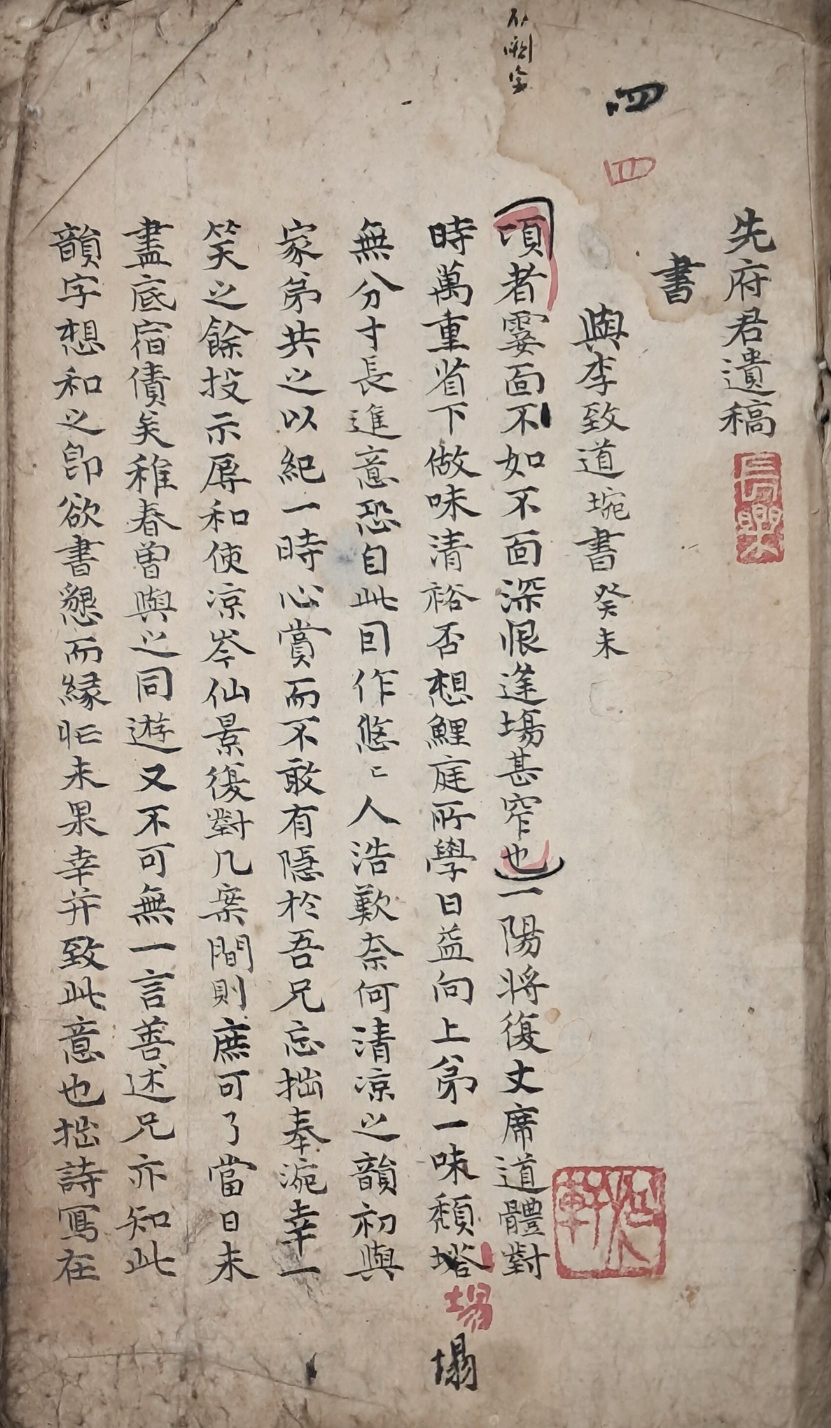 先府君遺稿
長樂
書
四
四
與李致道㙪書 癸未
頃者霎面不如不面深恨逢場甚窄也一陽將復丈席道體對
時萬重省下做味清裕否想鯉庭所學日益向上第一味頹塔
塌
塌
無分寸長進意恐自此因作悠〻人浩歎奈何清凉之韻初與
家弟共之以紀一時心賞而不敢有隱於吾兄忘拙奉浼幸一
笑之餘投示辱和使凉岑仙景復對几案間則庶可了當日未
盡底宿債矣稚春曽與之同遊又不可無一言善述兄亦知此
韻字想和之卽欲書懇而緣忙未果幸幷致此意也拙詩寫在